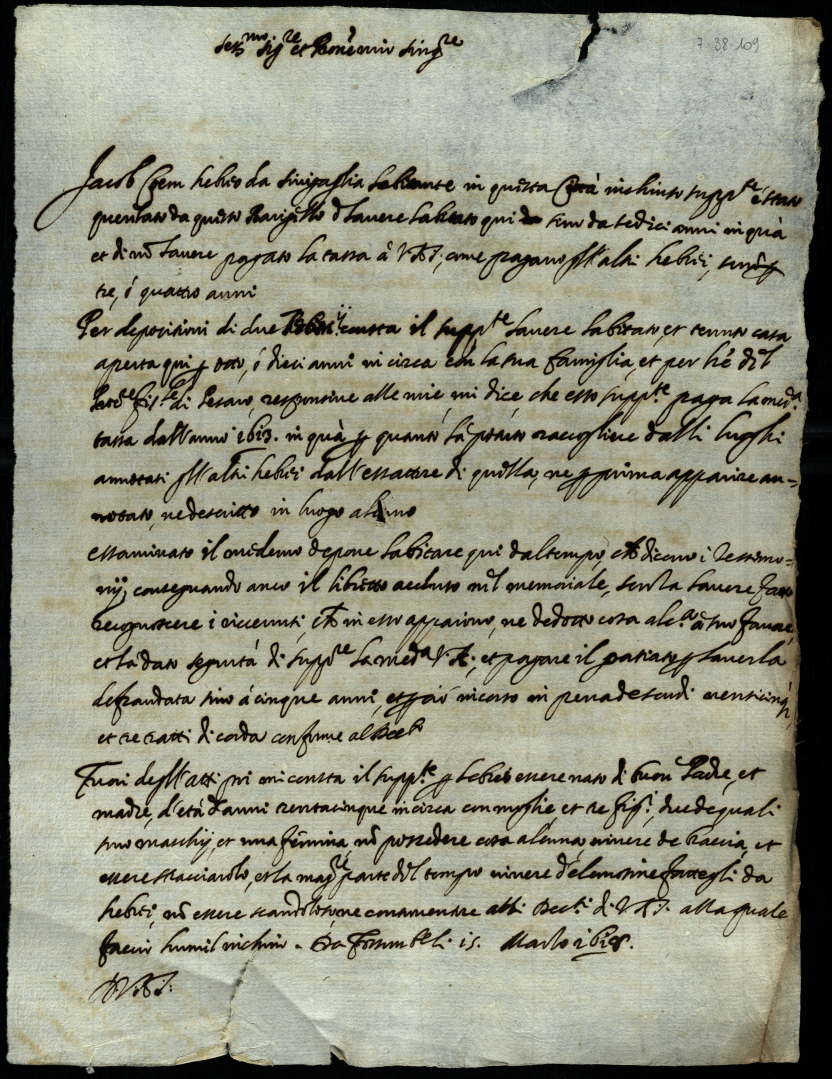 Ser.mo Sig.re et Prone mio sing.re
7-38-109
Jacob hebreo da Sinigaglia habitante in questa Città inchinto supp.te è stato
querelato da questo Bargello d'havere habitato qui sino da sedici anni in quà
et di nõ havere pagato la tassa à V.A.S. come pagano gl'altri hebrei, se nõ p
tre, ò quattro anni
Per depositioni di due consta il supp.te havere habitato, et tenuto casa
aperta qui p otto, ò dieci anni in circa con la sua famiglia, et per lr̃e del
di Pesaro, responsive alle mie mi dice che esso supp.te paga la med.a
tassa dall'anno 1613. in quà p quanto hà potuto raccogliere dalli luoghi
annotati gl'altri hebrei dall'essattore di quella, ne p prima apparire an=
notato, ne descritto in luogo alcuno
Essaminato il medemo depone habitare qui dal tempo, ch̃ dicono i testimo=
nij, consegnando anco il libretto accluso nel memoriale, senza havere fatto
recognoscere i riceuuti, ch̃ in esso appaiono, ne dedotto cosa alc.a à suo favore,
et hà dato segurtà di supp.re la med.a V.A., et pagare il p haverla
defraudata sino à cinque anni, et p ciò incorso in pena de scudi venticinq
et tre tratti di corda conforme al
Fuori degl'atti poi mi consta il supp.te p hebreo essere nato di buon Padre, et
madre, d'età d'anni trentacinque in circa con moglie, et tre fig.li, due de quali
sono maschij, et una femina nõ possedere cosa alcuna vivere de braccia, et
essere stacciarolo, et la mag.re parte del tempo vivere d'elemosine fattegli da
hebrei, nõ essere scandoloso, ne contraventore alli di V.A.S. alla quale
faccio humil inchino. Da Fossomb.e li 15. Marzo 1618.
D.V.A.S.